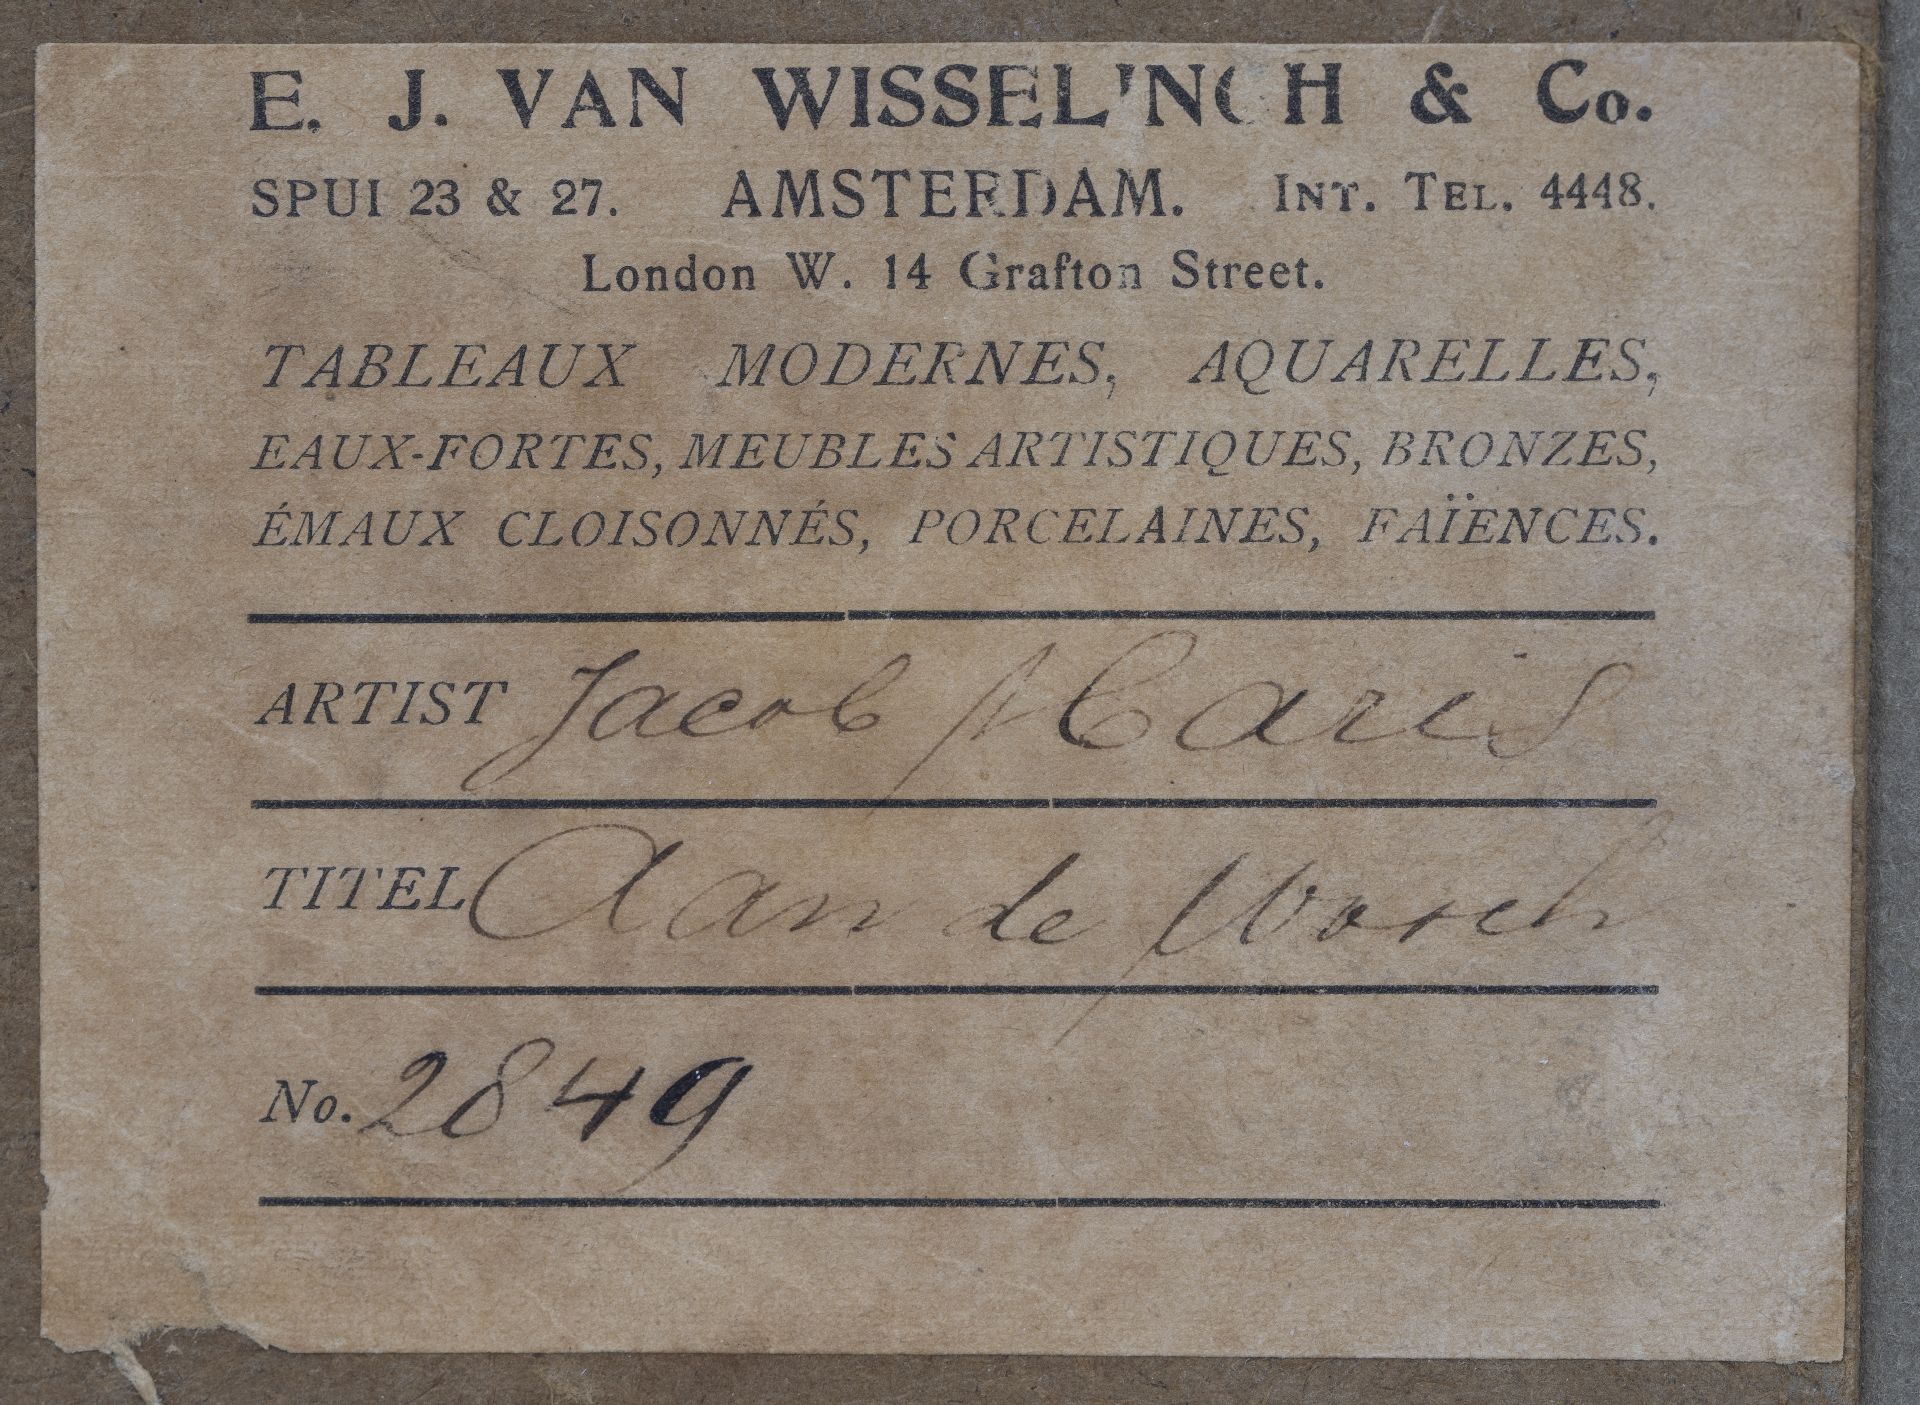 E. J. VAN WISSELINGH & Co.
SPUI 23 & 27. AMSTERDAM. INT. TEL. 4448.
London W. 14 Grafton Street.
TABLEAUX MODERNES, AQUARELLES,
EAUX-FORTES, MEUBLES ARTISTIQUES, BRONZES,
ÉMAUX CLOISONNÉS, PORCELAINES, FAÏENCES.
ARTIST Jacob Maris
TITEL Aan de
No. 2849